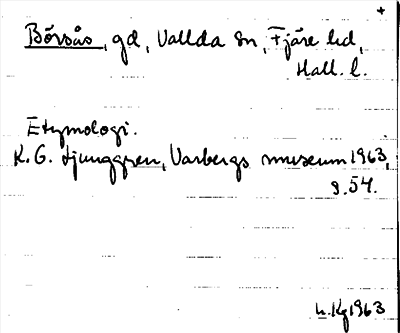 +
Börsås, gd, Vallda sn, Fjäre hd,
Hall. l.
Etymologi.
K. G. Ljunggren, Varbergs museum 1963,
s. 54.
1963